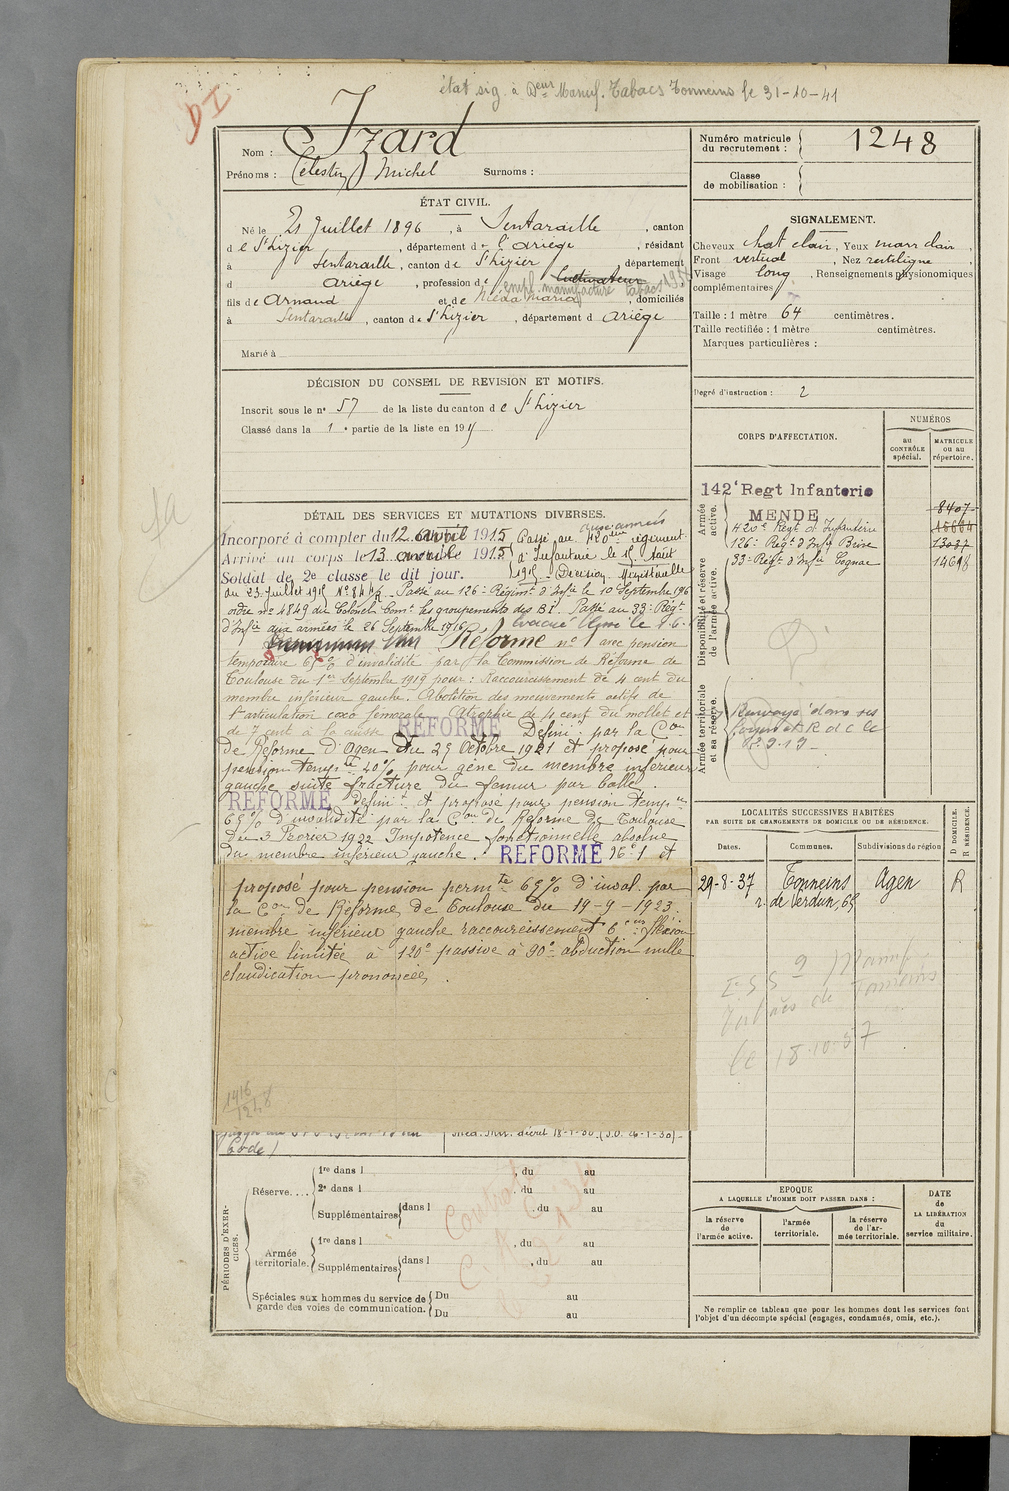 état sig. à Deur Manuf. Tabacs Tonneins le 31-10-41
Nom : Izard
Prénoms : Célestin Michel Surnoms :
Numéro matricule du recrutement : 1248
Classe de mobilisation :
ÉTAT CIVIL.
Né le 21 Juillet 1896, à Sentaraille, canton
de St Lizier, département de l'Ariège, résidant
à Sentaraille, canton de St Lizier, département
d Ariège, profession de Cultivateur empl. manufacture tabacs
fils de Arnaud et de Maria, domiciliés
à Sentaraille, canton de St Lizier, département d Ariège
Marié à
SIGNALEMENT.
Cheveux chat clair, Yeux marr clair,
Front vertical, Nez rectiligne,
Visage long, Renseignements physionomiques
complémentaires
Taille : 1 mètre 64 centimètres.
Taille rectifiée : 1 mètre centimètres.
Marques particulières :
DÉCISION DU CONSEIL DE REVISION ET MOTIFS.
Inscrit sous le n° 57 de la liste du canton de St Lizier
Classé dans la 1e partie de la liste en 191
Degré d'instruction : 2
CORPS D'AFFECTATION.
NUMÉROS
au CONTRÔLE spécial.
MATRICULE ou au répertoire.
Armée active.
142e Regt Infanterie
MENDE 8407
420e Régt d'Infanterie
126e Régt d'Infie Brive 13037
33e Régt d'Infie Cognac
Disponibilité et réserve de l'armée active.
Armée territoriale et sa réserve.
Renvoyé dans ses
foyers
DÉTAIL DES SERVICES ET MUTATIONS DIVERSES.
Incorporé à compter du 12 avril 1915
Arrivé au corps le 13 1915
Soldat de 2e classe le dit jour.
Passé au 420ème régiment
d'Infanterie le 1er août
1915. Décision Ministérielle
du 23 Juillet 1915 Passé au 126e Régimt d'Infie le 10 Septembre 1916
ordre n° 4849 du Colonel Comt les groupements des BI. Passé au 33e Régt
d'Infie aux armées le 26 Septembre 1916. Evacué
Réformé n° 1 avec pension
temporaire 65% d'invalidité par la Commission de Réforme de
Toulouse du 1er Septembre 1919 pour : Raccourcissement de 4 cent du
membre inférieur gauche. Abolition des mouvements actifs de
l'articulation coxo fémorale. Atrophie de 4 cent du mollet et
de 7 cent à la cuisse REFORMÉ Définit par la Con
de Réforme d'Agen du 25 Octobre 1921 et proposé pour
pension tempre 40% pour gêne du membre inférieur
gauche suite fracture du femur par balle.
REFORMÉ Définit et proposé pour pension tempre
65% d'invalidité par la Con de Réforme de Toulouse
du 3 Février 1922 Impotence fonctionnelle absolue
du membre inférieur gauche. REFORMÉ N° 1 et
proposé pour pension permte 65% d'inval. par
la Con de Réforme de Toulouse du 19-9-1923.
membre inférieur gauche raccourcissement 6 cms flexion
active limitée à 120° passive à 90° abduction nulle
claudication prononcée.
1416
1248
Code)
LOCALITÉS SUCCESSIVES HABITÉES
PAR SUITE DE CHANGEMENTS DE DOMICILE OU DE RÉSIDENCE.
Dates. Communes. Subdivisions de région
D DOMICILE. R RÉSIDENCE.
29-8-37 Tonneins Agen R
r. de Verdun, 65
Tabacs de Tonneins
le 18-10-37
PÉRIODES D'EXERCICES.
Réserve.... 1re dans l , du au
2e dans l , du au
Supplémentaires dans l , du au
Armée territoriale. 1re dans l , du au
Supplémentaires dans l , du au
Spéciales aux hommes du service de garde des voies de communication. Du au
Du au
EPOQUE
A LAQUELLE L'HOMME DOIT PASSER DANS :
la réserve de l'armée active.
l'armée territoriale.
la réserve de l'armée territoriale.
DATE de LA LIBÉRATION du service militaire.
Ne remplir ce tableau que pour les hommes dont les services font
l'objet d'un décompte spécial (engagés, condamnés, omis, etc.).